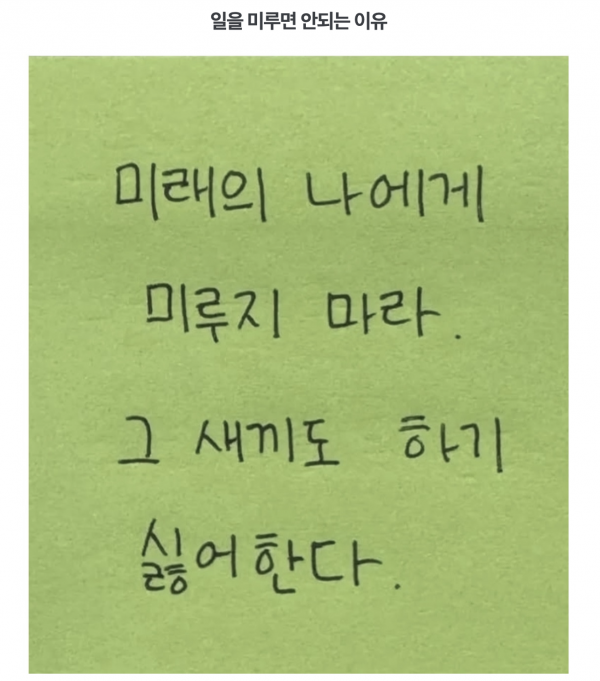 일을 미루면 안되는 이유
미래의 나에게
미루지 마라.
그 새끼도 하기
싫어한다.